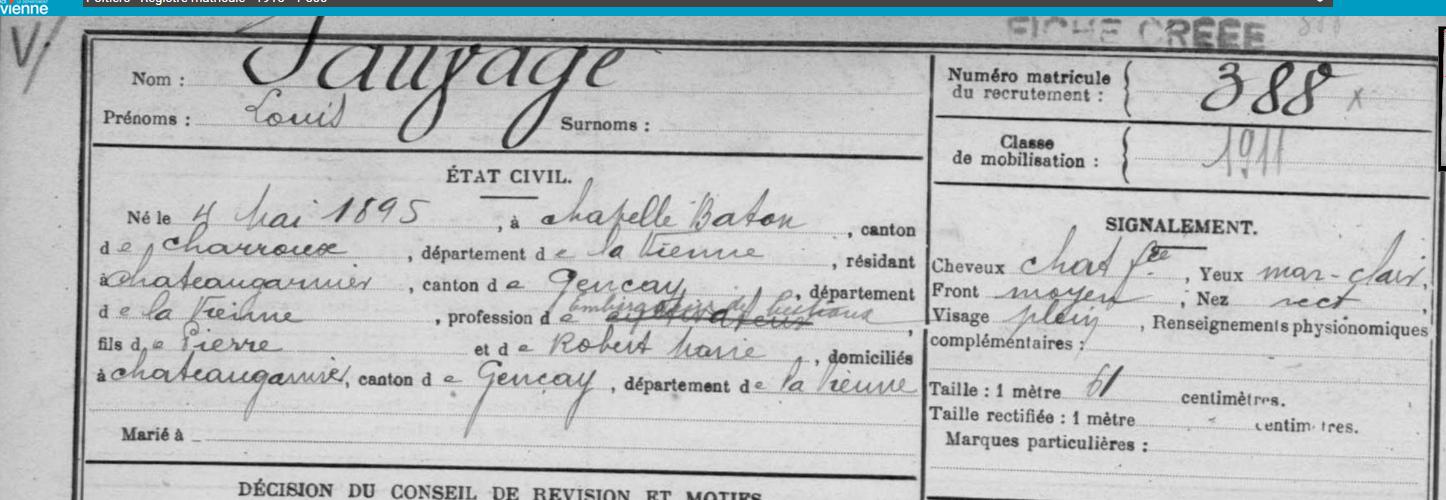 vienne
FICHE CRÉÉE
V/
Nom : Sauvage
Prénoms : Louis Surnoms :
Numéro matricule
du recrutement : 388 x
Classe
de mobilisation : 1911
ÉTAT CIVIL.
Né le 4 Mai 1895, à chapelle Baton, canton
de charroux, département de la Vienne, résidant
à chateaugarnier, canton de Gençay, département
de la Vienne, profession de cultivateur bestiaux,
fils de Pierre et de Robert Marie, domiciliés
à chateaugarnier, canton de Gençay, département de la Vienne
Marié à
SIGNALEMENT.
Cheveux chat fcé, Yeux mar-clair,
Front moyen, Nez rect
Visage plein, Renseignements physionomiques
complémentaires :
Taille : 1 mètre 61 centimètres.
Taille rectifiée : 1 mètre centimètres.
Marques particulières :
DÉCISION DU CONSEIL DE REVISION ET MOTIFS